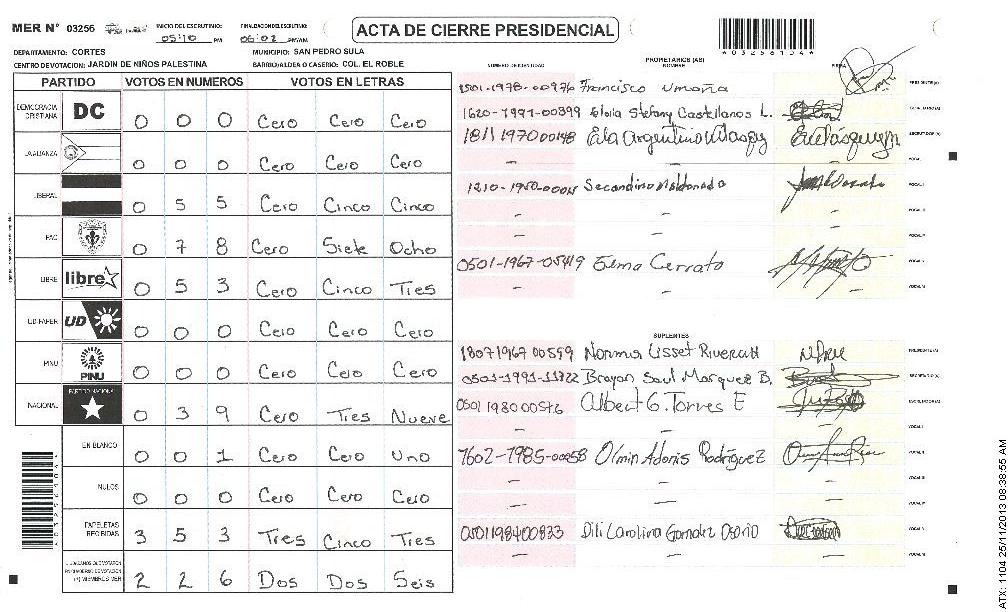 MER Nº 03256 INICIO DEL ESCRUTINIO: 05:10 PM FINALIZACION ESCRUTINIO: 06:02 PM/AM ACTA DE CIERRE PRESIDENCIAL
DEPARTAMENTO: CORTES MUNICIPIO: SAN PEDRO SULA
CENTRO DE VOTACION: JARDIN DE NIÑOS PALESTINA BARRIO/ALDEA O CASERIO: COL. EL ROBLE
PARTIDO VOTOS EN NUMEROS VOTOS EN LETRAS
DEMOCRACIA CRISTIANA DC 0 0 0 Cero Cero Cero
LA ALIANZA 0 0 0 Cero Cero Cero
LIBERAL 0 5 5 Cero Cinco Cinco
PAC 0 7 8 Cero Siete Ocho
LIBRE libre 0 5 3 Cero Cinco Tres
UD-FAPER UD 0 0 0 Cero Cero Cero
PINU PINU 0 0 0 Cero Cero Cero
NACIONAL PARTIDO NACIONAL 0 3 9 Cero Tres Nueve
EN BLANCO 0 0 1 Cero Cero Uno
NULOS 0 0 0 Cero Cero Cero
PAPELETAS RECIBIDAS 3 5 3 Tres Cinco Tres
2 2 6 Dos Dos Seis
NUMERO DE IDENTIDAD PROPIETARIOS (AS) NOMBRE FIRMA
1501-1978-00976 Francisco Umaña PRESIDENTE(A)
1620-1991-00399 Gloria Stefany Castellanos L. SECRETARIO(A)
1811197000148 ESCRUTADOR(A)
Secundino Maldonado
0501-1967-05419 Elma Cerrato
SUPLENTES
1807196700599 Norma Lisset Rivera PRESIDENTE(A)
0501-1991-11722 Brayan Saul Marquez B. SECRETARIO(A)
0501198000576 Albert G. Torres E ESCRUTADOR(A)
1602-1985-00058 Olmin Adonis Rodríguez
0501198400833 Carolina Osorio
03256104
ATX: 1104 25/11/2013 08:38:55 AM